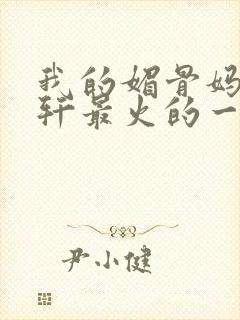 我的媚骨妈
轩最火的一
尹小健